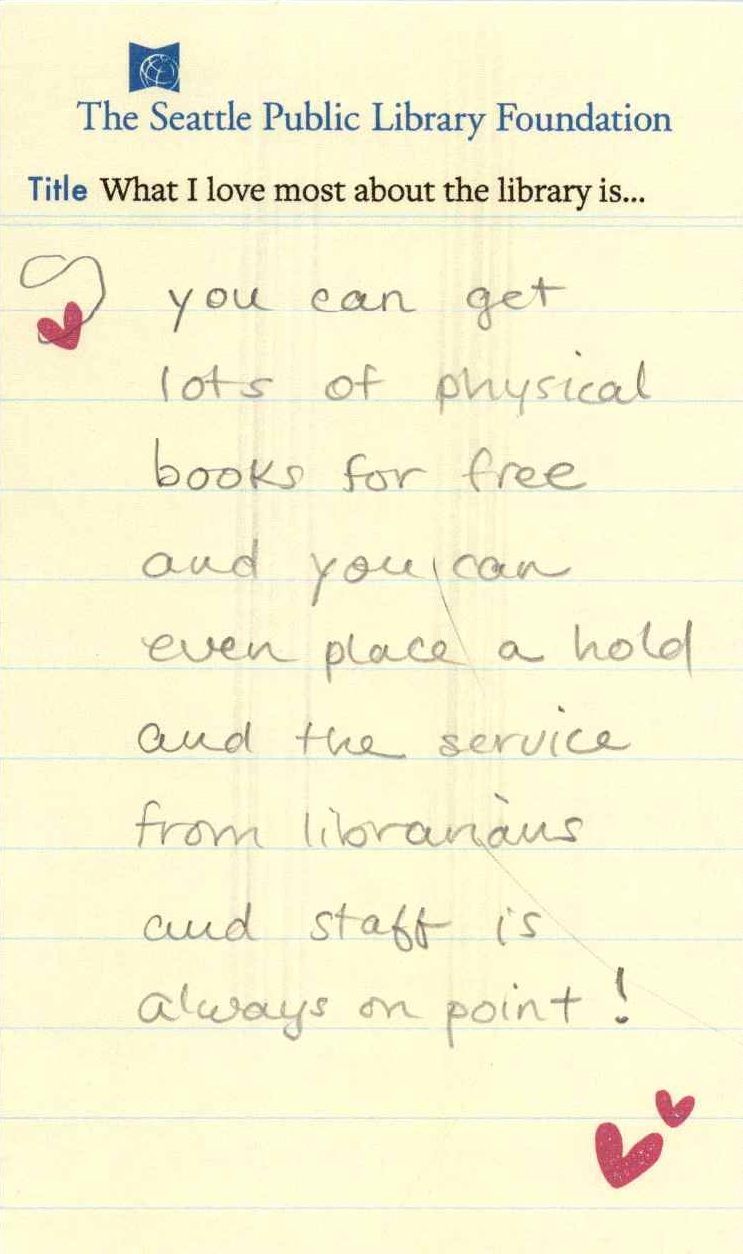 The Seattle Public Library Foundation
Title What I love most about the library is...
you can get
lots of physical
books for free
and you can
even place a hold
and the service
from librarians
and staff is
always on point!